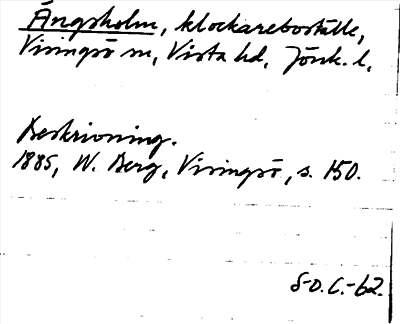 Ängsholm, klockareboställe,
Visingsö sn, Vista hd, Jönk. l.
Beskrivning.
1885, W. Berg, Visingsö, s. 150.
S-O.C.-62.